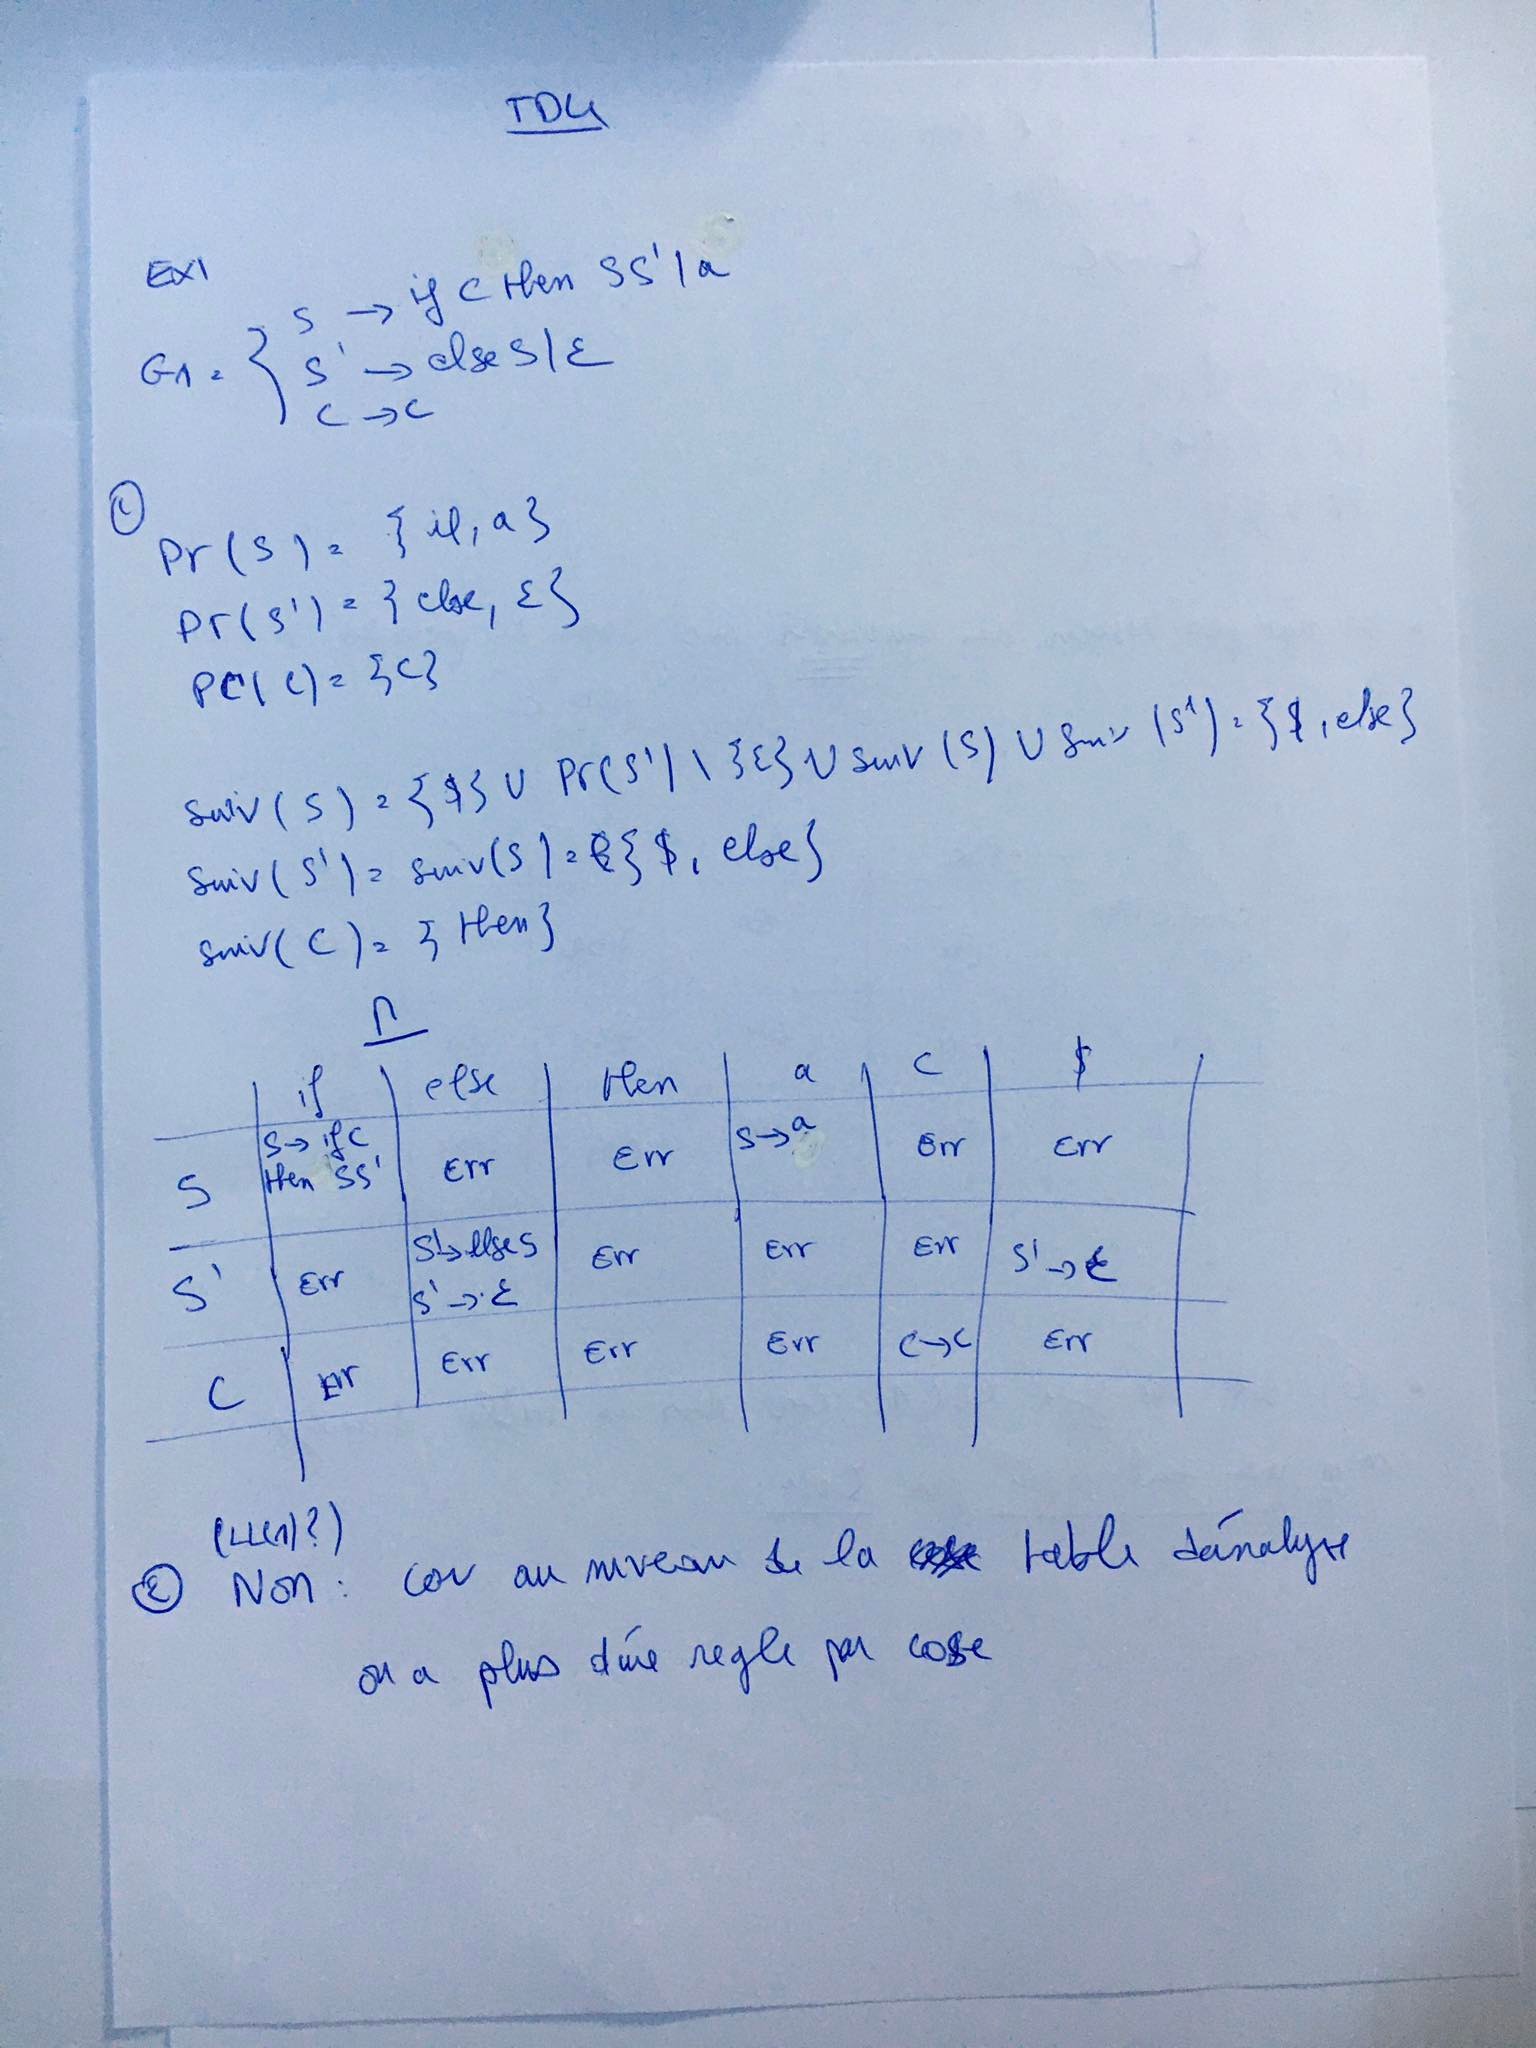 TD4
EX1
G1 = { S → if C then SS' | a
S' → else S | ε
C → c
①
Pr(S) = {if, a}
Pr(S') = {else, ε}
Pr(C) = {c}
Suiv(S) = {$} ∪ Pr(S') \ {ε} ∪ Suiv(S) ∪ Suiv(S') = {$, else}
Suiv(S') = Suiv(S) = {$, else}
Suiv(C) = {then}
M
if else then a c $
S S → if C then SS' Err Err S → a Err Err
S' Err S' → else S S' → ε Err Err Err S' → ε
C Err Err Err Err C → c Err
(LL(1)?)
② Non : car au niveau de la table d'analyse
on a plus d'une regle par case